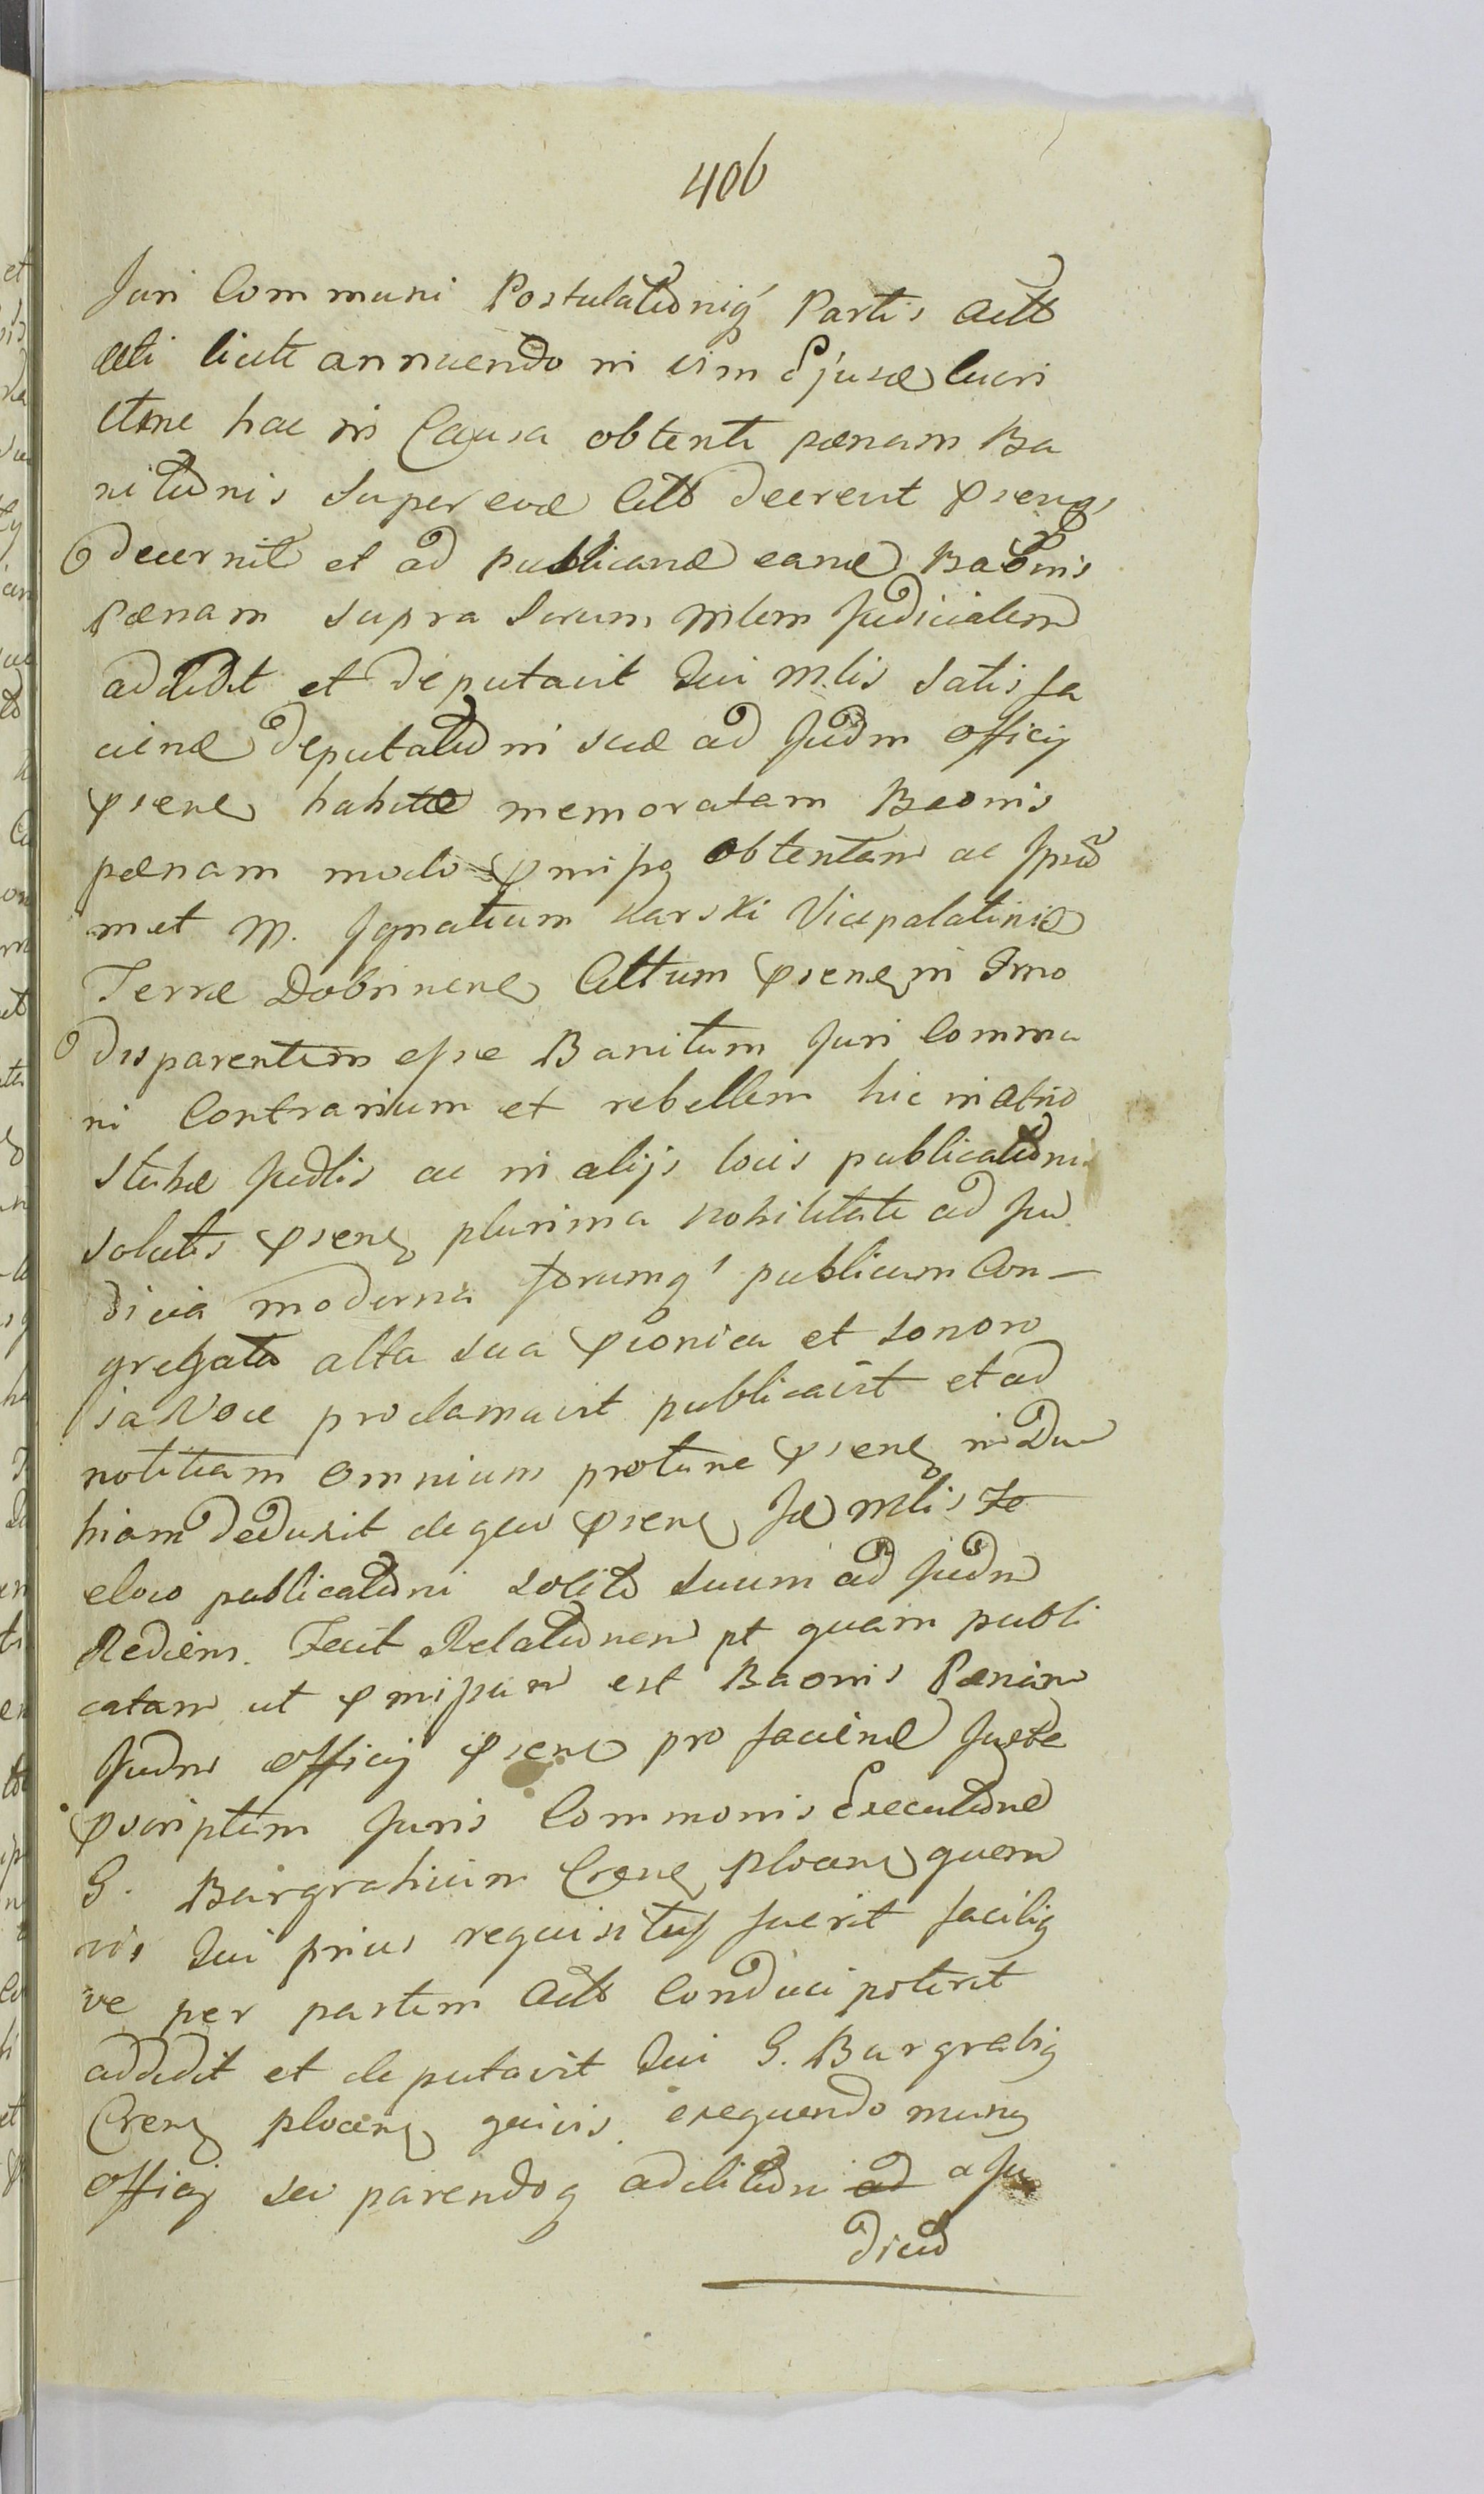 406
Juri Communi Postulationiq' Partis Actt
acti licite annuendo in vim Ejusd lucri
itme hac in Causa obtenti pænam Ba
nitionis super eud Citt decrevit psens
decernit et ad publicand eand Baonis
Pænam supra Scrum Mlem Judicialem
addidit et deputavit Qui Mlis satisfa
ciend deputationi suæ ad Judm Officij
psens habitæ memoratam Baonis
pænam modo pmisso obtentam ac Ipsu
met M. Ignatium Karski Vicepalatinid
Terræ Dobrinens Cittum psens in Trno
disparentem esse Banitum Juri Commu
ni Contrarium et rebellem hic in atrio
Stubæ Judlis ac in alijs locis publicationi
solitis psens plurima nobilitate ad Ju
dicia moderna forumq' publicum Con-
gregata alta sua pconica et sonoro
sa Voce proclamavit publicavit et ad
notitiam omnium protunc psens in Du
biam deduxit de quo psens Id Mlis
eloco publicationi solito suum ad Judm
Rediens. Fecit Relationem pt quam publi
catam ut pmissum est Baonis Pænam
Judm Officij psens pro faciend Juxta
pscriptum Juris Communis Executione
G. Burgrabium Crens Plocens quem
vis Qui prius requisitus fuerit faciliq
ve per partem Actt Conduci poterit
addidit et deputavit Qui G. Burgrabiq
Crens Plocens quivis exequendo munq
Officij sui parendoq additioni ad a Ju
dicio